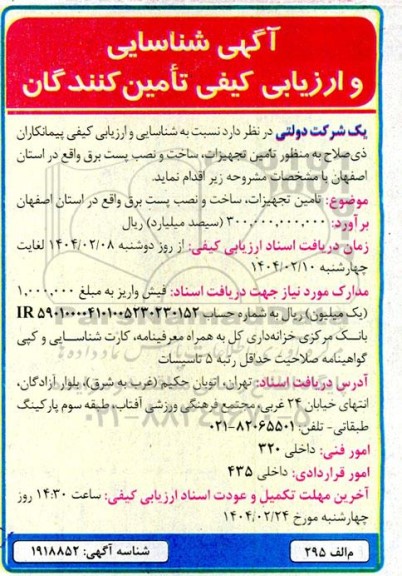 آگهی شناسایی
و ارزیابی کیفی تأمین‌کنندگان
یک شرکت دولتی در نظر دارد نسبت به شناسایی و ارزیابی کیفی پیمانکاران
ذی‌صلاح به منظور تأمین تجهیزات، ساخت و نصب پست برق واقع در استان
اصفهان با مشخصات مشروحه زیر اقدام نماید.
موضوع: تأمین تجهیزات، ساخت و نصب پست برق واقع در استان اصفهان
برآورد: ۳۰۰,۰۰۰,۰۰۰,۰۰۰ (سیصد میلیارد) ریال
زمان دریافت اسناد ارزیابی کیفی: از روز دوشنبه ۱۴۰۴/۰۲/۰۸ لغایت
چهارشنبه ۱۴۰۴/۰۲/۱۰
مدارک مورد نیاز جهت دریافت اسناد: فیش واریز به مبلغ ۱,۰۰۰,۰۰۰
(یک میلیون) ریال به شماره حساب IR ۵۹۰۱۰۰۰۰۴۱۰۱۰۰۵۲۳۰۲۳۰۱۵۲
بانک مرکزی خزانه‌داری کل به همراه معرفینامه، کارت شناسایی و کپی
گواهینامه صلاحیت حداقل رتبه ۵ تاسیسات
آدرس دریافت اسناد: تهران، اتوبان حکیم (غرب به شرق)، بلوار آزادگان،
انتهای خیابان ۲۴ غربی، مجتمع فرهنگی ورزشی آفتاب، طبقه سوم پارکینگ
طبقاتی- تلفن: ۸۲۰۶۵۵۰۱-۰۲۱
امور فنی: داخلی ۳۲۰
امور قراردادی: داخلی ۴۳۵
آخرین مهلت تکمیل و عودت اسناد ارزیابی کیفی: ساعت ۱۴:۳۰ روز
چهارشنبه مورخ ۱۴۰۴/۰۲/۲۴
م‌الف ۲۹۵
شناسه آگهی: ۱۹۱۸۸۵۲